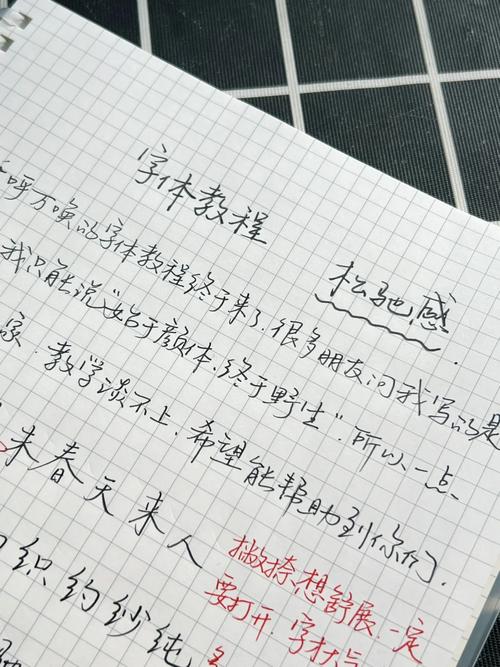 字体教程
松驰感
呼万唤的字体教程终于来了.很多朋友问我写的是
我只能说"始于颜体,终于野生".所以、一点、
家.教学谈不上.希望能帮助到你们.
来春天来人
织约纱纯
撇捺想舒展.一定
要打开.字